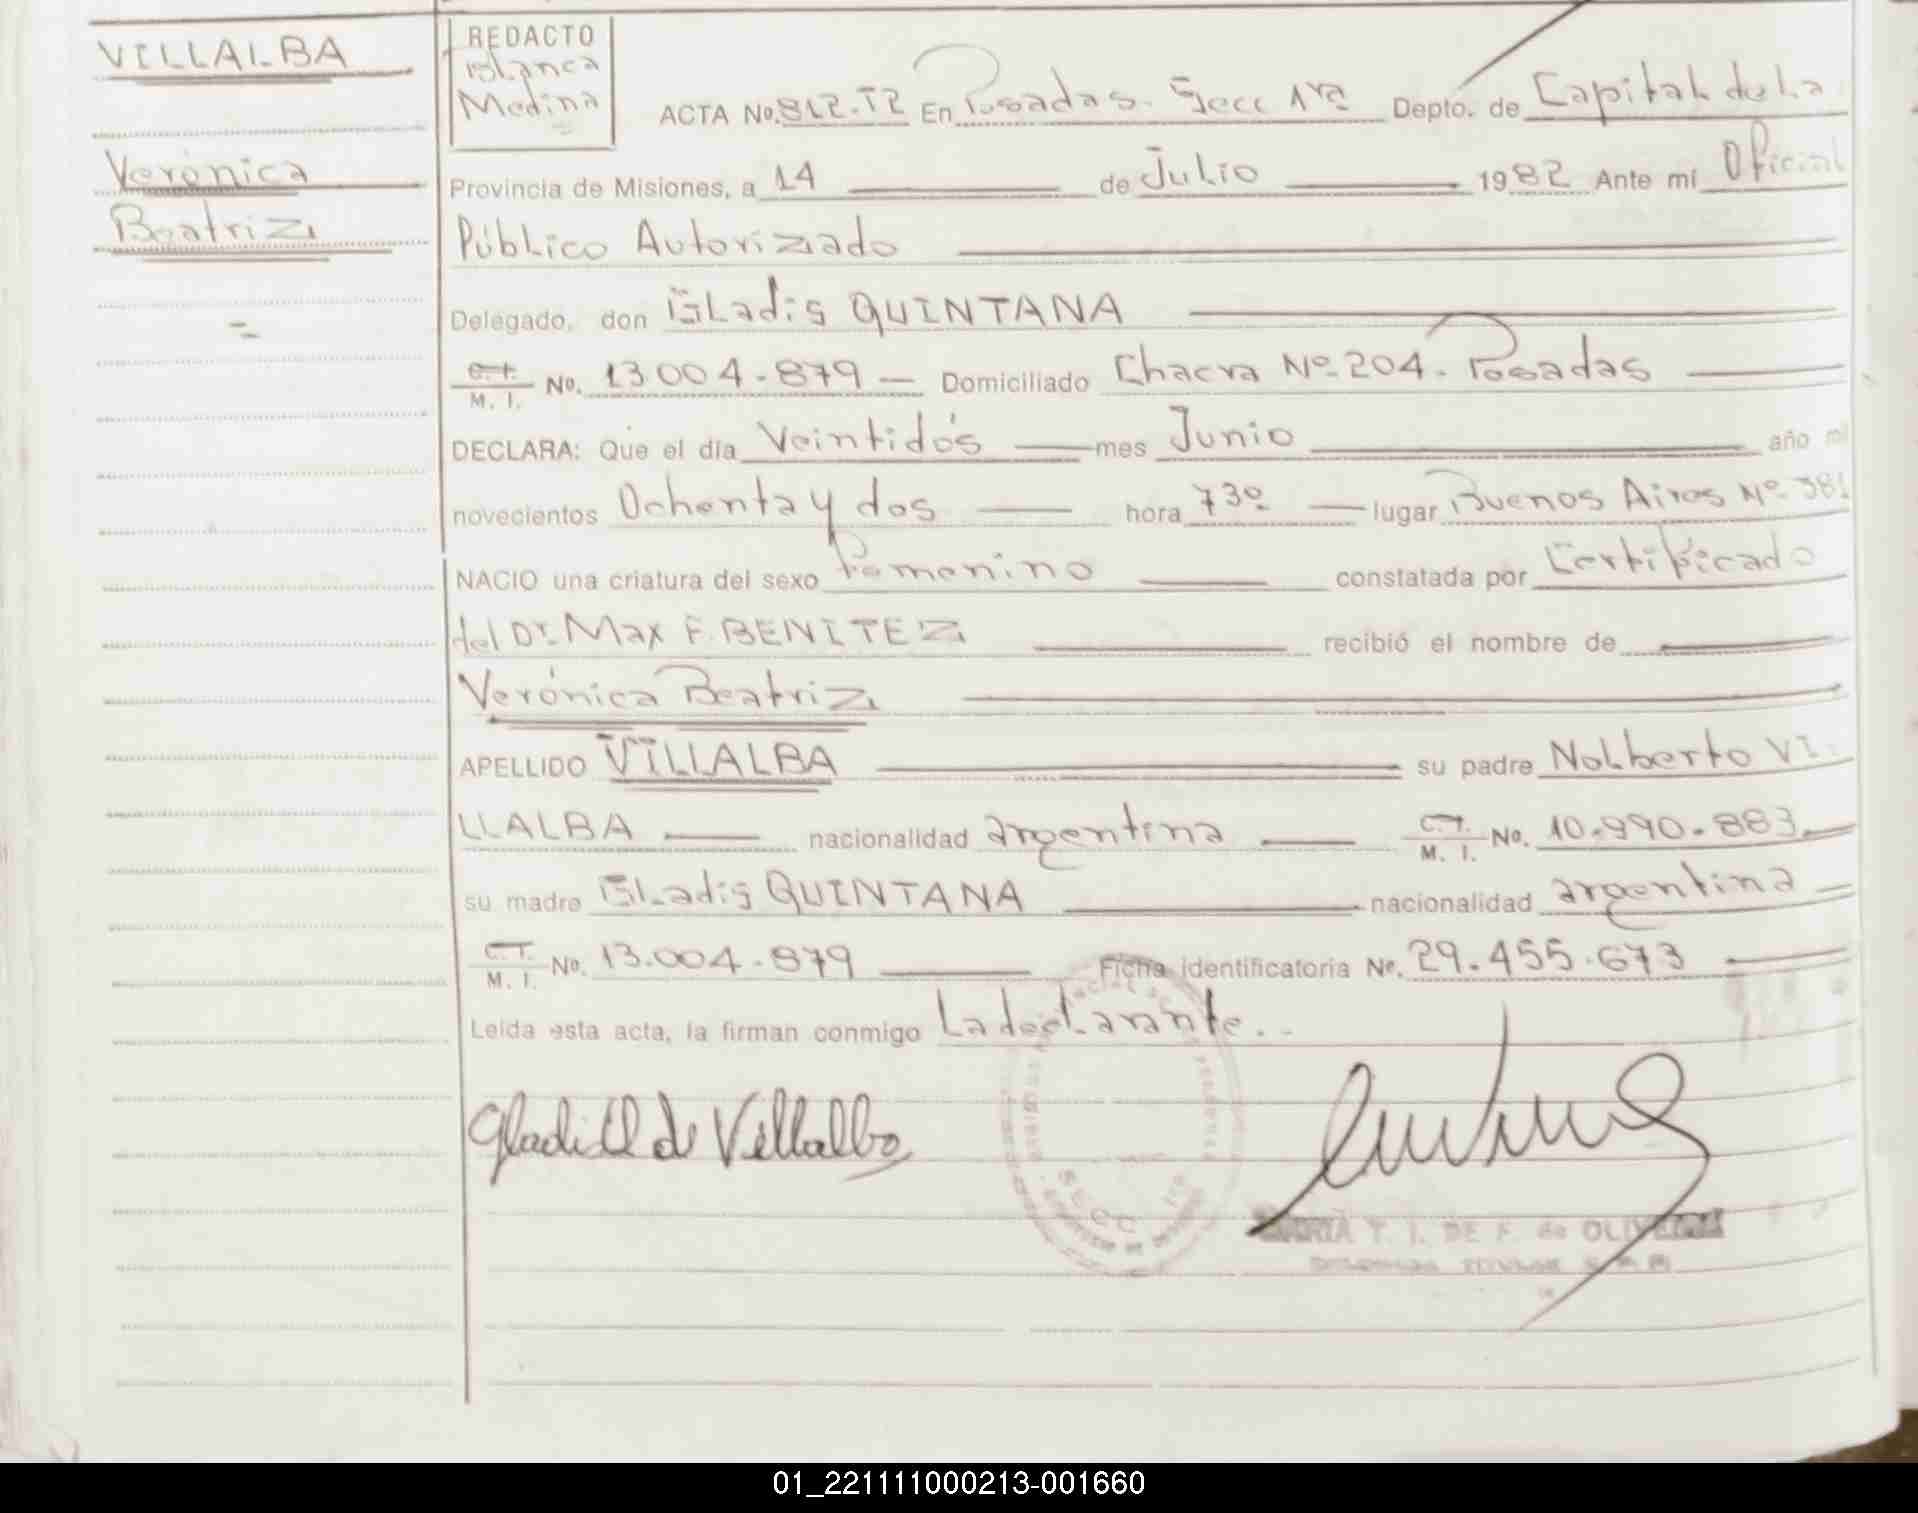 VILLALBA
Verónica
Beatriz
REDACTO
Blanca
Medina
ACTA No. 812.T2 En Posadas. Secc 1ra Depto. de Capital de La
Provincia de Misiones, a 14 de Julio 1982 Ante mí Oficial
Público Autorizado
Delegado, don Gladis QUINTANA
C.I. M. I. No. 13 004.879 Domiciliado Chacra Nº 204. Posadas
DECLARA: Que el día Veintidós mes Junio año mi
novecientos Ochenta y dos hora 7 30 lugar Buenos Aires Nº 381
NACIO una criatura del sexo Femenino constatada por Certificado
del Dr. Max F. BENITEZ recibió el nombre de
Verónica Beatriz
APELLIDO VILLALBA su padre Nolberto VI
LLALBA nacionalidad argentina C.I. M. I. No. 10.990.883
su madre Gladis QUINTANA nacionalidad argentina
C.I. M. I. No. 13.004.879 Ficha identificatoria No. 29.455.673
Leída esta acta, la firman conmigo La declarante..
de Villalba
SECC 1ra
MARIA T. I. DE F. de OLIVEIRA
01_221111000213-001660